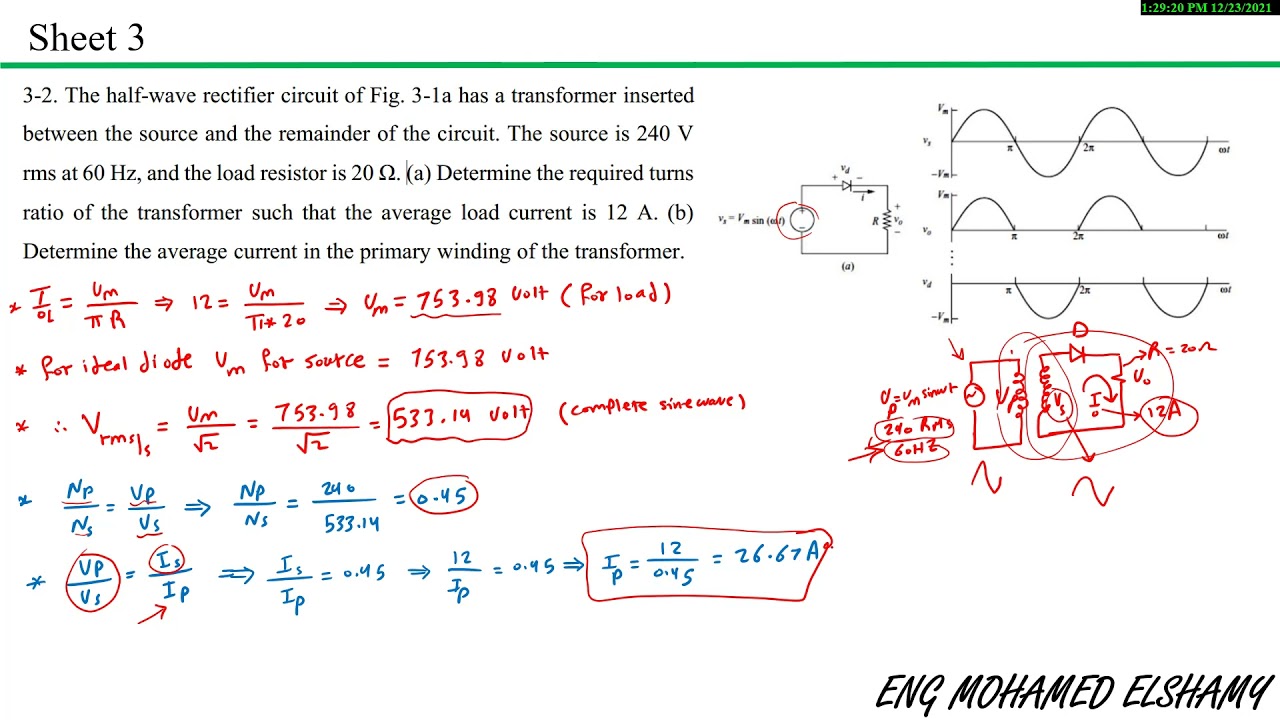 1:29:20 PM 12/23/2021
Sheet 3
3-2. The half-wave rectifier circuit of Fig. 3-1a has a transformer inserted
between the source and the remainder of the circuit. The source is 240 V
rms at 60 Hz, and the load resistor is 20 Ω. (a) Determine the required turns
ratio of the transformer such that the average load current is 12 A. (b)
Determine the average current in the primary winding of the transformer.
* I = Um / πR ⇒ 12 = Um / π*20 ⇒ Um = 753.98 volt (for load)
* for ideal diode Um for source = 753.98 volt
* ∴ Vrms|s = Um / √2 = 753.98 / √2 = 533.14 volt (complete sine wave)
* Np / Ns = Vp / Vs ⇒ Np / Ns = 240 / 533.14 = 0.45
* Vp / Vs = Is / Ip ⇒ Is / Ip = 0.45 ⇒ 12 / Ip = 0.45 ⇒ Ip = 12 / 0.45 = 26.67 A
vs = Vm sin (ωt)
+ vd −
i
R
+
vo
−
(a)
Vm
vs
π
2π
ωt
−Vm
Vm
vo
π
2π
ωt
vd
π
2π
ωt
−Vm
D
R = 20Ω
Vo
Up = Um sin wt
Vp
Vs
Io
12A
240 RMS
60HZ
ENG MOHAMED ELSHAMY